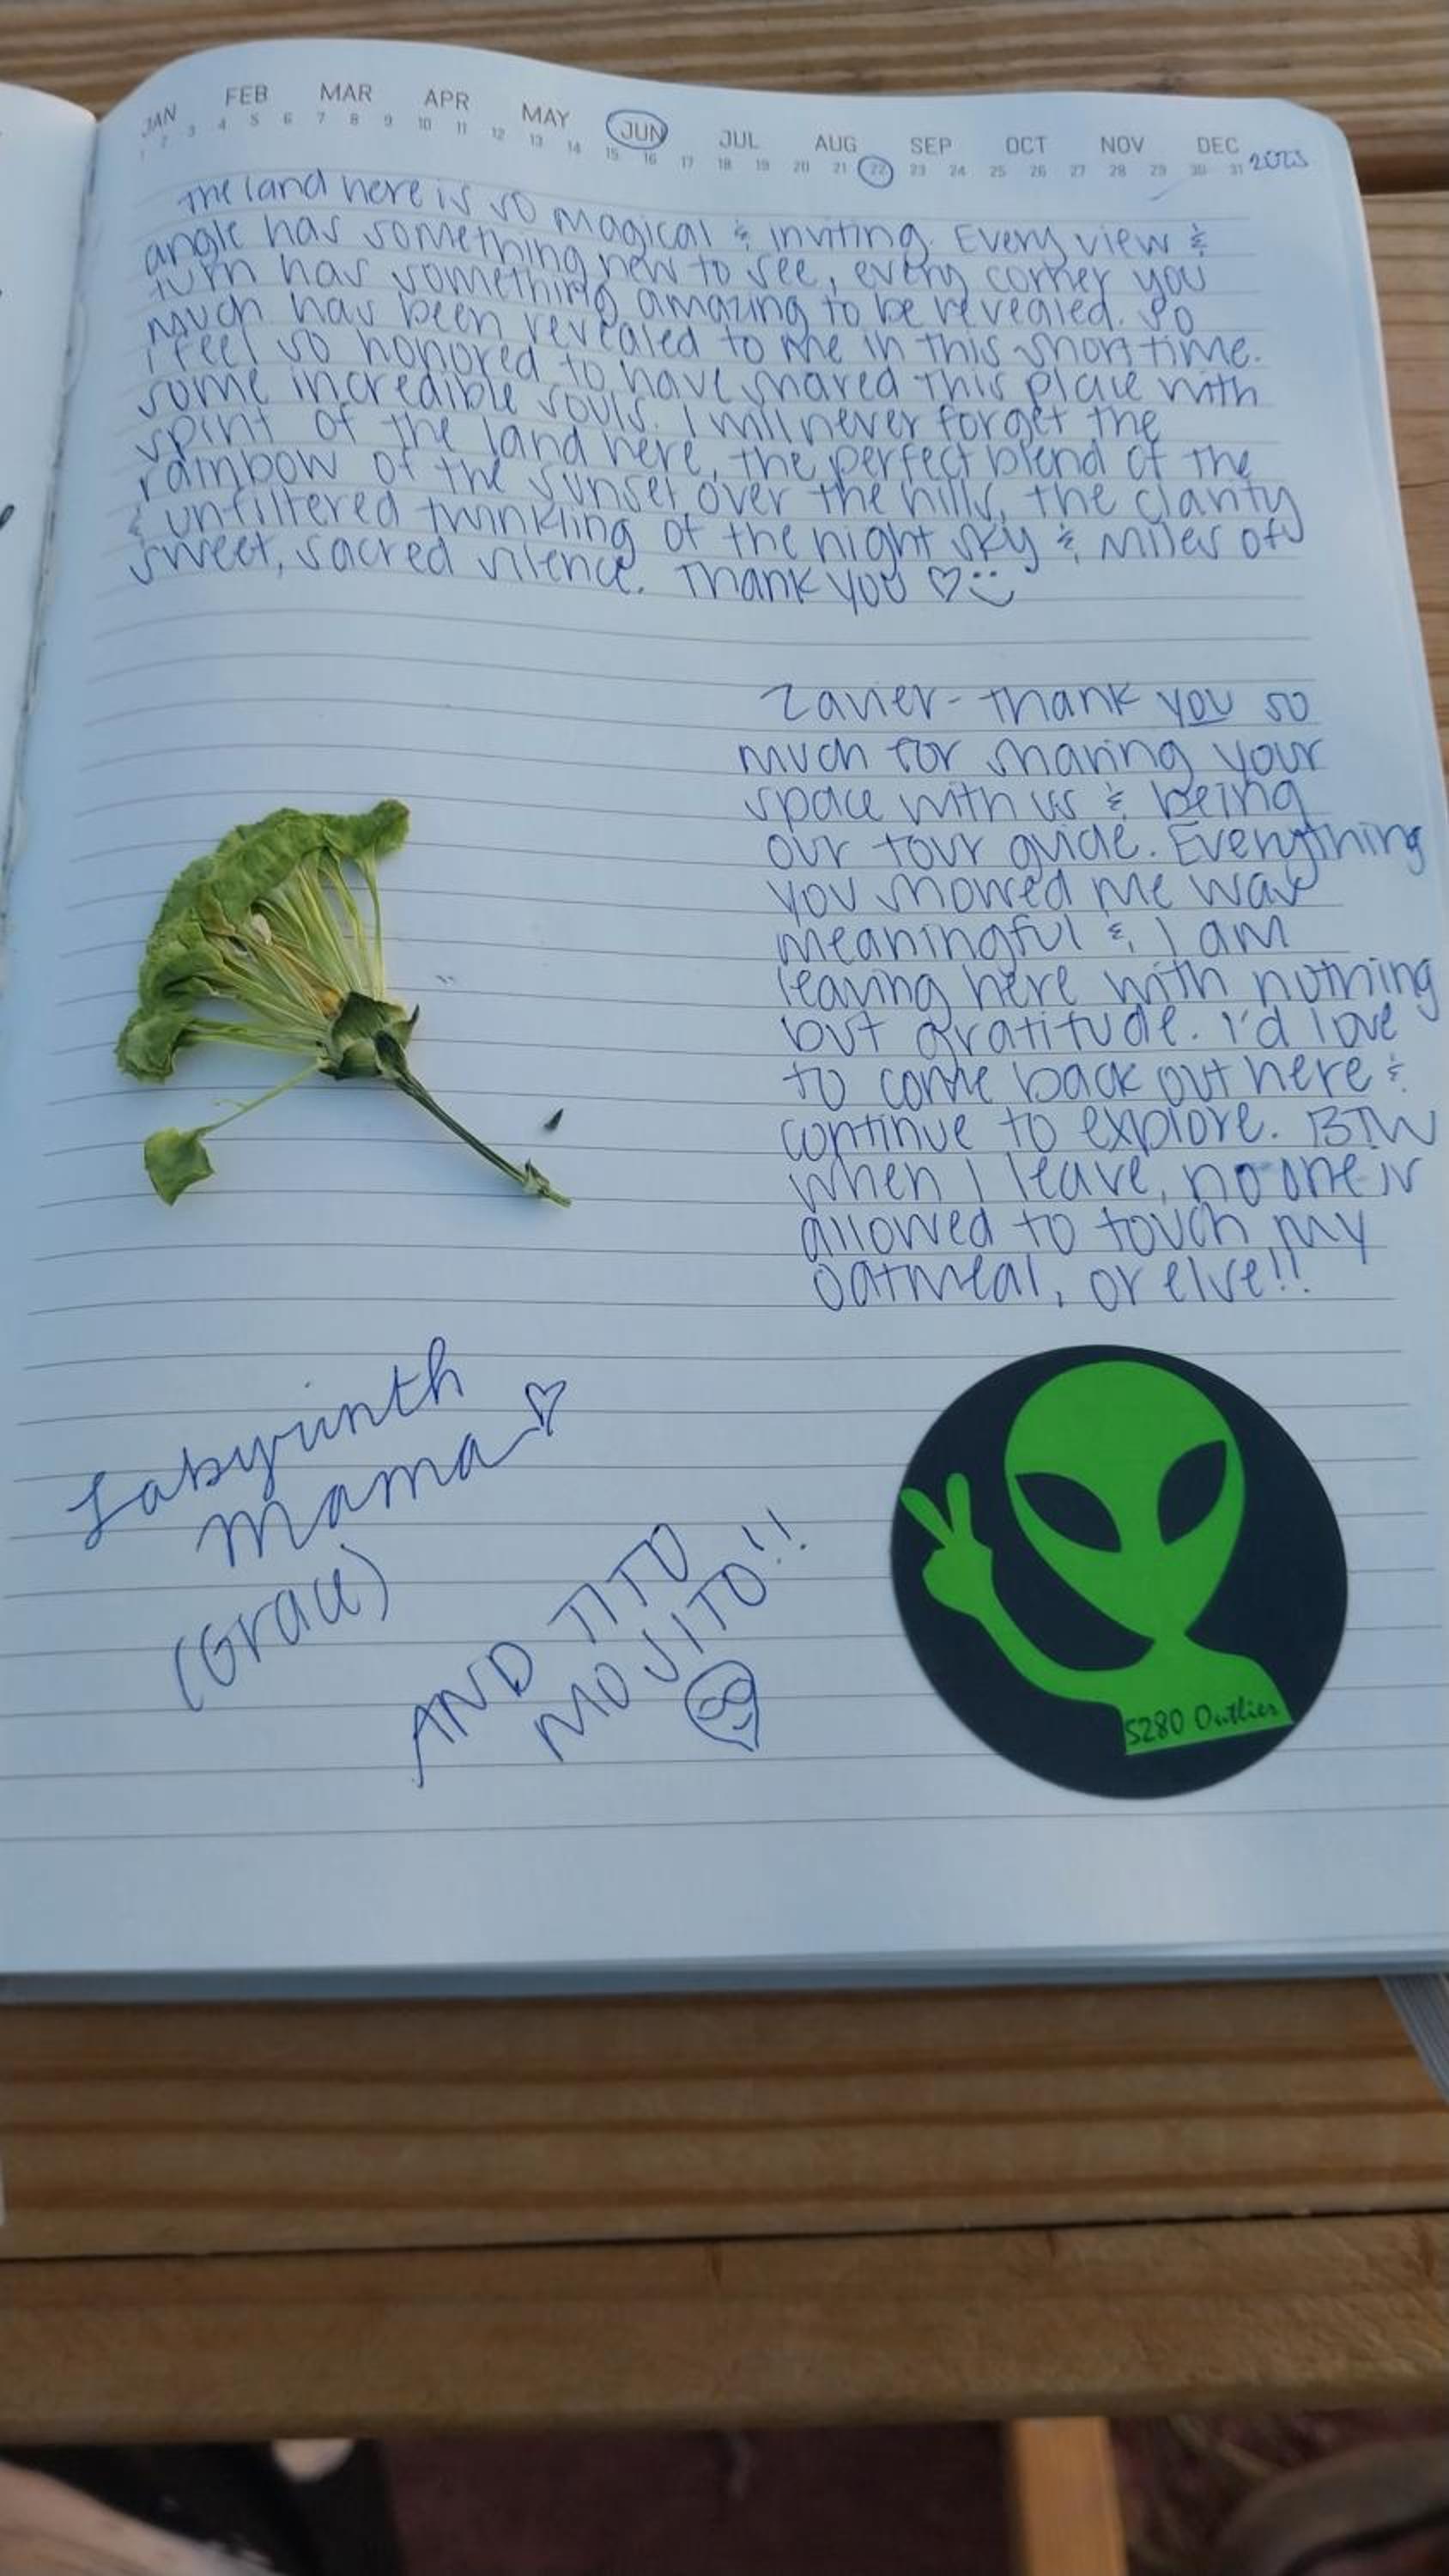 JAN FEB MAR APR MAY JUN JUL AUG SEP OCT NOV DEC
1 2 3 4 5 6 7 8 9 10 11 12 13 14 15 16 17 18 19 20 21 22 23 24 25 26 27 28 29 30 31 2023
The land here is so magical & inviting. Every view &
angle has something new to see, every corner you
turn has something amazing to be revealed. So
much has been revealed to me in this short time.
I feel so honored to have shared this place with
some incredible souls. I will never forget the
spirit of the land here, the perfect blend of the
rainbow of the sunset over the hills, the clarity
& unfiltered twinkling of the night sky & miles of
sweet, sacred silence. Thank you ♡
Zavier - thank you so
much for sharing your
space with us & being
our tour guide. Everything
you showed me was
meaningful & I am
leaving here with nothing
but gratitude. I'd love
to come back out here &
continue to explore. BTW
when I leave, no one is
allowed to touch my
oatmeal, or else!!
Labyrinth
Mama ♡
(Grace)
AND TITO
MOJITO!!
5280 Outlier